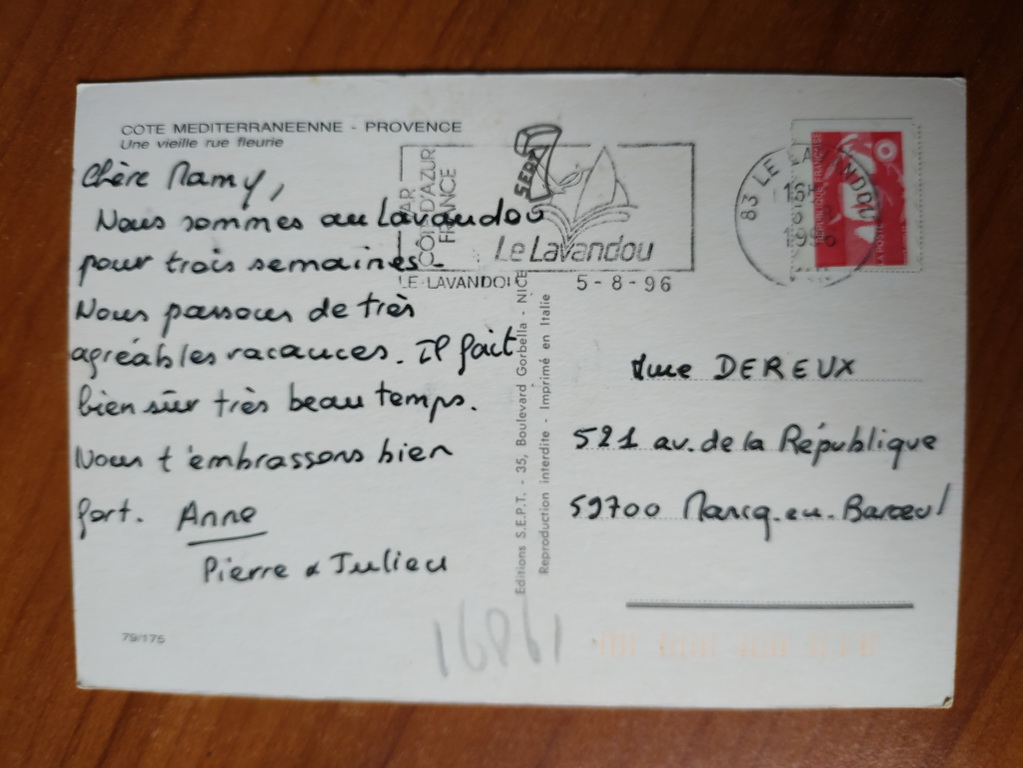 COTE MEDITERRANEENNE - PROVENCE
Une vieille rue fleurie
Chère Mamy,
Nous sommes au Lavandou
pour trois semaines.
Nous passons de très
agréables vacances. Il fait
bien sûr très beau temps.
Nous t'embrassons bien
fort. Anne
Pierre & Julien
79/175
VAR
CÔTE D'AZUR
FRANCE
Le Lavandou
LE LAVANDOU 5-8-96
SEPT
Editions S.E.P.T. - 35, Boulevard Gorbella - NICE
Reproduction interdite - Imprimé en Italie
83 LE LAVANDOU
16H
1996
REPUBLIQUE FRANÇAISE
LA POSTE
Mme DEREUX
521 av. de la République
59700 Marcq-en-Baroeul
16891